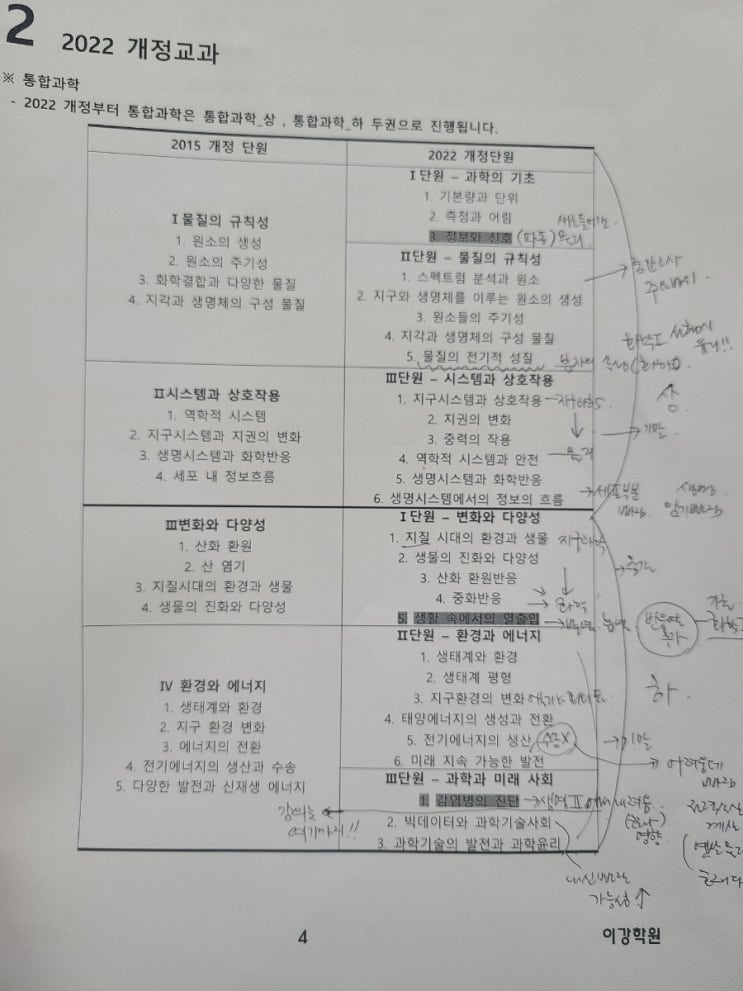 2
2022 개정교과
※ 통합과학
- 2022 개정부터 통합과학은 통합과학_상 , 통합과학_하 두권으로 진행됩니다.
2015 개정 단원
2022 개정단원
Ⅰ물질의 규칙성
1. 원소의 생성
2. 원소의 주기성
3. 화학결합과 다양한 물질
4. 지각과 생명체의 구성 물질
Ⅰ단원 – 과학의 기초
1. 기본량과 단위
2. 측정과 어림
3. 정보와 신호 (파동) 물리
Ⅱ단원 – 물질의 규칙성
1. 스펙트럼 분석과 원소
2. 지구와 생명체를 이루는 원소의 생성
3. 원소들의 주기성
4. 지각과 생명체의 구성 물질
5. 물질의 전기적 성질
Ⅱ시스템과 상호작용
1. 역학적 시스템
2. 지구시스템과 지권의 변화
3. 생명시스템과 화학반응
4. 세포 내 정보흐름
Ⅲ단원 – 시스템과 상호작용
1. 지구시스템과 상호작용
2. 지권의 변화
3. 중력의 작용
4. 역학적 시스템과 안전
물리
5. 생명시스템과 화학반응
6. 생명시스템에서의 정보의 흐름
상
기말
Ⅲ변화와 다양성
1. 산화 환원
2. 산 염기
3. 지질시대의 환경과 생물
4. 생물의 진화와 다양성
Ⅰ단원 – 변화와 다양성
1. 지질 시대의 환경과 생물 지구과학
2. 생물의 진화와 다양성
3. 산화 환원반응
4. 중화반응
화학
5. 생활 속에서의 열출입
중간
Ⅳ 환경와 에너지
1. 생태계와 환경
2. 지구 환경 변화
3. 에너지의 전환
4. 전기에너지의 생산과 수송
5. 다양한 발전과 신재생 에너지
Ⅱ단원 – 환경과 에너지
1. 생태계와 환경
2. 생태계 평형
3. 지구환경의 변화
4. 태양에너지의 생성과 전환
5. 전기에너지의 생산, 수송X
6. 미래 지속 가능한 발전
하
기말
Ⅲ단원 – 과학과 미래 사회
1. 감염병의 진단 → 생명Ⅱ에서 내려옴
2. 빅데이터와 과학기술사회
3. 과학기술의 발전과 과학윤리
강의는
여기까지!!
가능성↑
4
이강학원